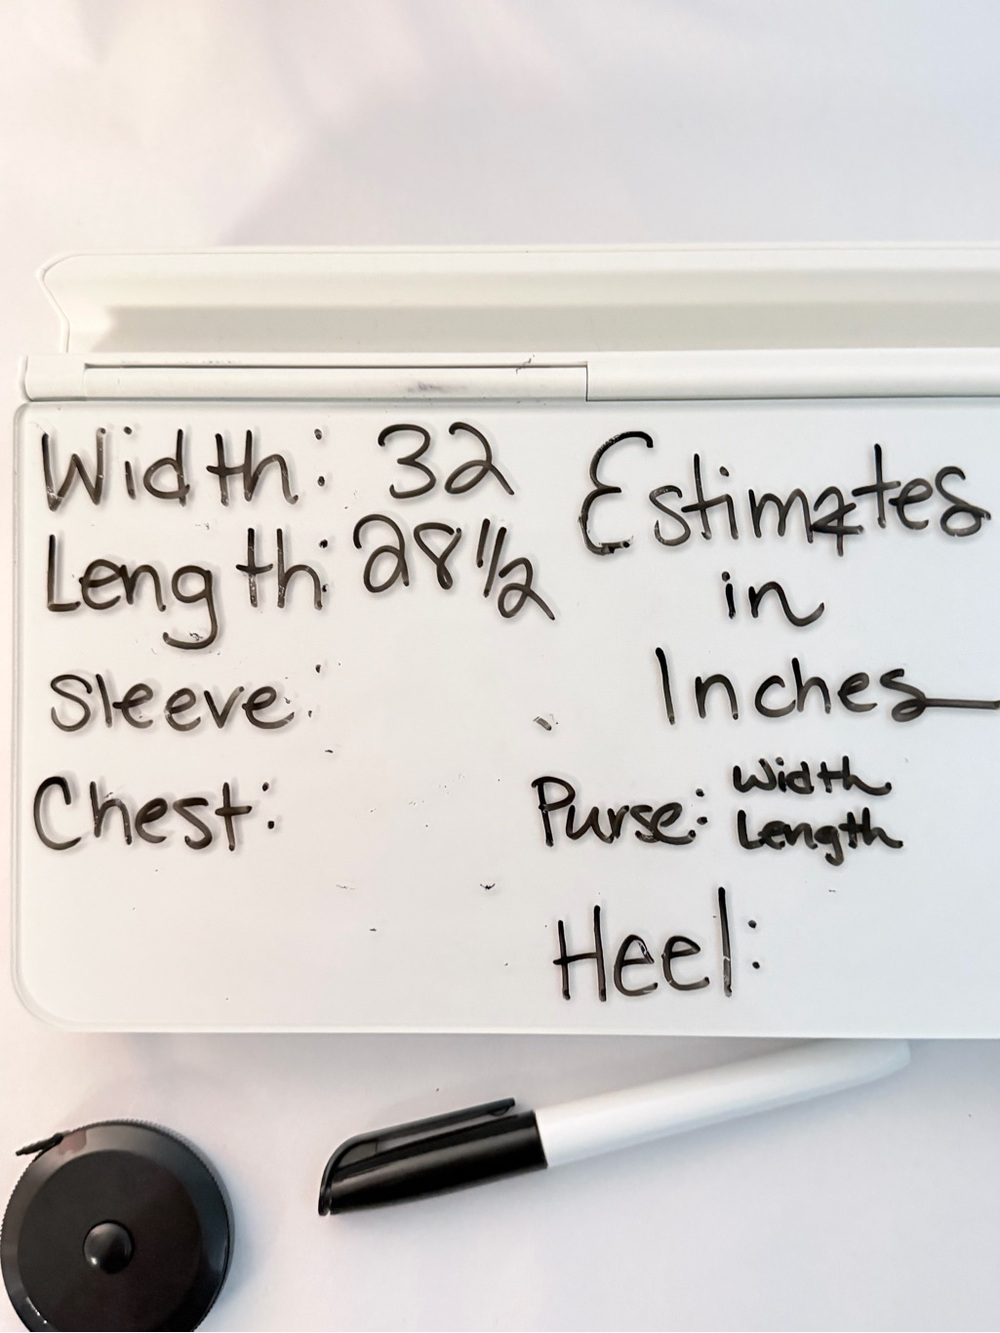 Width: 32
Length: 28 1/2
Sleeve:
Chest:
Estimates
in
Inches
Purse: Width
Length
Heel: